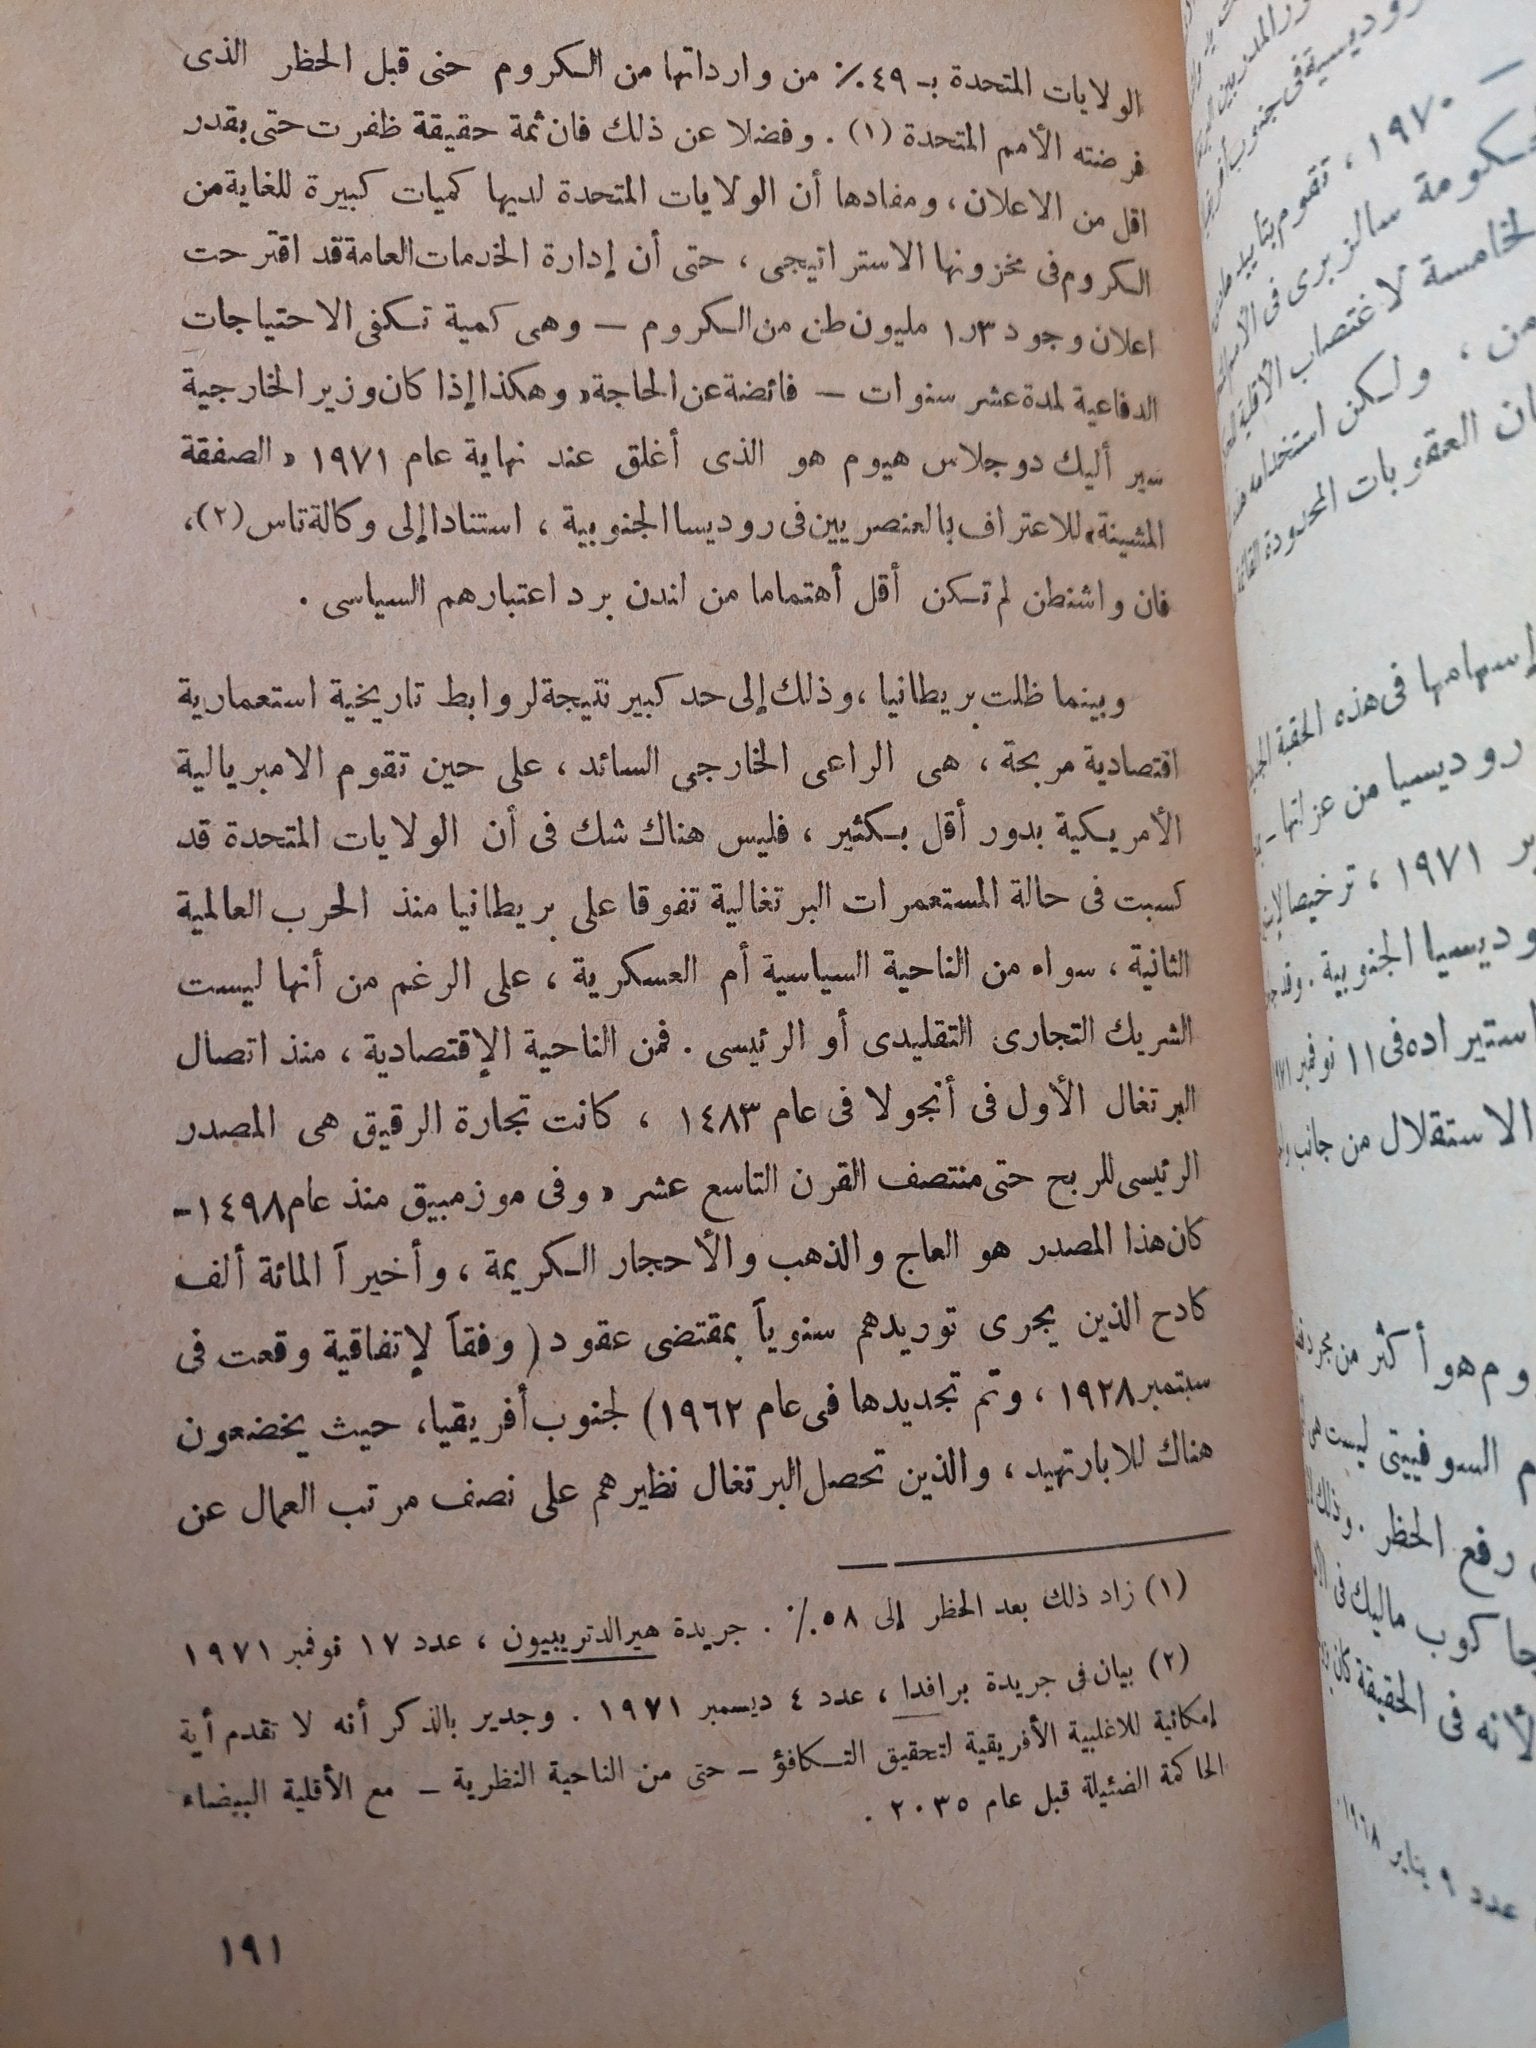 الولايات المتحدة بـ ٤٩٪ من وارداتها من الكروم حتى قبل الحظر الذى
فرضته الأمم المتحدة (١) . وفضلا عن ذلك فان ثمة حقيقة ظفرت حتى بقدر
اقل من الاعلان ، ومفادها أن الولايات المتحدة لديها كميات كبيرة للغاية من
الكروم فى مخزونها الاستراتيجى ، حتى أن إدارة الخدمات العامة قد اقترحت
اعلان وجود ١٫٣ مليون طن من الكروم — وهى كمية تكفى الاحتياجات
الدفاعية لمدة عشر سنوات — فائضة عن الحاجة« وهكذا إذا كان وزير الخارجية
سير أليك دوجلاس هيوم هو الذى أغلق عند نهاية عام ١٩٧١ « الصفقة
المشينة» للاعتراف بالعنصريين فى روديسا الجنوبية ، استنادا إلى وكالة تاس (٢)،
فان واشنطن لم تكن أقل أهتماما من لندن برد اعتبارهم السياسى .
وبينما ظلت بريطانيا ، وذلك إلى حد كبير نتيجة لروابط تاريخية استعمارية
اقتصادية مربحة ، هى الراعى الخارجى السائد ، على حين تقوم الامبريالية
الأمريكية بدور أقل بكثير ، فليس هناك شك فى أن الولايات المتحدة قد
كسبت فى حالة المستعمرات البرتغالية تفوقا على بريطانيا منذ الحرب العالمية
الثانية ، سواء من الناحية السياسية أم العسكرية ، على الرغم من أنها ليست
الشريك التجارى التقليدى أو الرئيسى . فمن الناحية الإقتصادية ، منذ اتصال
البرتغال الأول فى أنجولا فى عام ١٤٨٣ ، كانت تجارة الرقيق هى المصدر
الرئيسى للربح حتى منتصف القرن التاسع عشر « وفى موزمبيق منذ عام ١٤٩٨-
كان هذا المصدر هو العاج والذهب والأحجار الكريمة ، وأخيراً المائة ألف
كادح الذين يجرى توريدهم سنوياً بمقتضى عقود ( وفقاً لإتفاقية وقعت فى
سبتمبر ١٩٢٨ ، وتم تجديدها فى عام ١٩٦٢) لجنوب أفريقيا، حيث يخضعون
هناك للابارتهيد ، والذين تحصل البرتغال نظيرهم على نصف مرتب العمال عن
(١) زاد ذلك بعد الحظر إلى ٥٨٪ . جريدة هيرالدتريبيون ، عدد ١٧ نوفمبر ١٩٧١
(٢) بيان فى جريدة برافدا ، عدد ٤ ديسمبر ١٩٧١ . وجدير بالذكر أنه لا تقدم أية
إمكانية للاغلبية الأفريقية لتحقيق التكافؤ - حتى من الناحية النظرية - مع الأقلية البيضاء
الحاكمة الضئيلة قبل عام ٢٠٣٥ .
١٩١
١٩٧٠ ، تقوم بتأييد
حكومة سالزبرى فى
الخامسة لاغتصاب الأقلية
من ، ولكن استخدامه
العقوبات المحدودة
إسهامها فى هذه الحقبة
روديسيا من عزلتها -
١٩٧١ ، ترخيصا
الجنوبية . وقد
استيراده فى ١١ نوفمبر
الاستقلال من جانب
هو أكثر من مجرد
السوفييتى ليست هى
رفع الحظر . وذلك
جاكوب ماليك فى
لأنه فى الحقيقة كان
عدد ٩ يناير ١٩٦٨ .